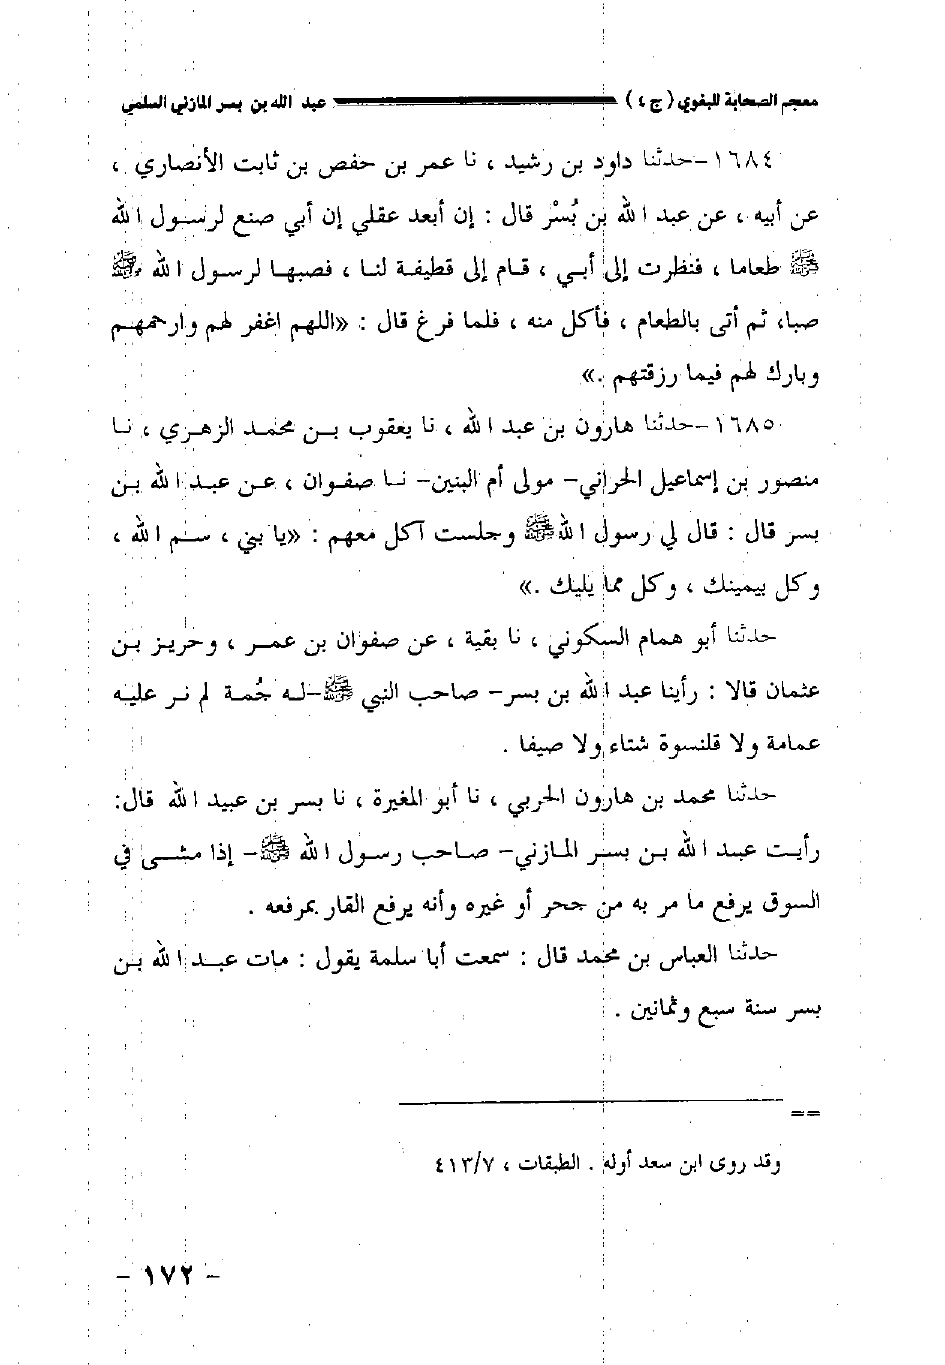 معجم الصحابة للبغوي (ج ٤) عبد الله بن بسر المازني السلمي
١٦٨٤-حدثنا داود بن رشيد ، نا عمر بن حفص بن ثابت الأنصاري ،
عن أبيه ، عن عبد الله بن بُسْر قال : إن أبعد عقلي إن أبي صنع لرسول الله
ﷺ طعاما ، فنظرت إلى أبي ، قام إلى قطيفة لنا ، فصبها لرسول الله ﷺ
صبا، ثم أتى بالطعام ، فأكل منه ، فلما فرغ قال : «اللهم اغفر لهم وارحمهم
وبارك لهم فيما رزقتهم .»
١٦٨٥-حدثنا هارون بن عبد الله ، نا يعقوب بن محمد الزهري ، نا
منصور بن إسماعيل الحراني- مولى أم البنين- نا صفوان ، عن عبد الله بن
بسر قال : قال لي رسول الله ﷺ وجلست آكل معهم : «يا بني ، سم الله ،
وكل بيمينك ، وكل مما يليك .»
حدثنا أبو همام السكوني ، نا بقية ، عن صفوان بن عمر ، وحريز بن
عثمان قالا : رأينا عبد الله بن بسر- صاحب النبي ﷺ-له جُمة لم نر عليه
عمامة ولا قلنسوة شتاء ولا صيفا .
حدثنا محمد بن هارون الحربي ، نا أبو المغيرة ، نا بسر بن عبيد الله قال:
رأيت عبد الله بن بسر المازني- صاحب رسول الله ﷺ- إذا مشى في
السوق يرفع ما مر به من جحر أو غيره وأنه يرفع القار بمرفعه .
حدثنا العباس بن محمد قال : سمعت أبا سلمة يقول : مات عبد الله بن
بسر سنة سبع وثمانين .
==
وقد روى ابن سعد أوله . الطبقات ، ٤١٣/٧
- ١٧٢ -